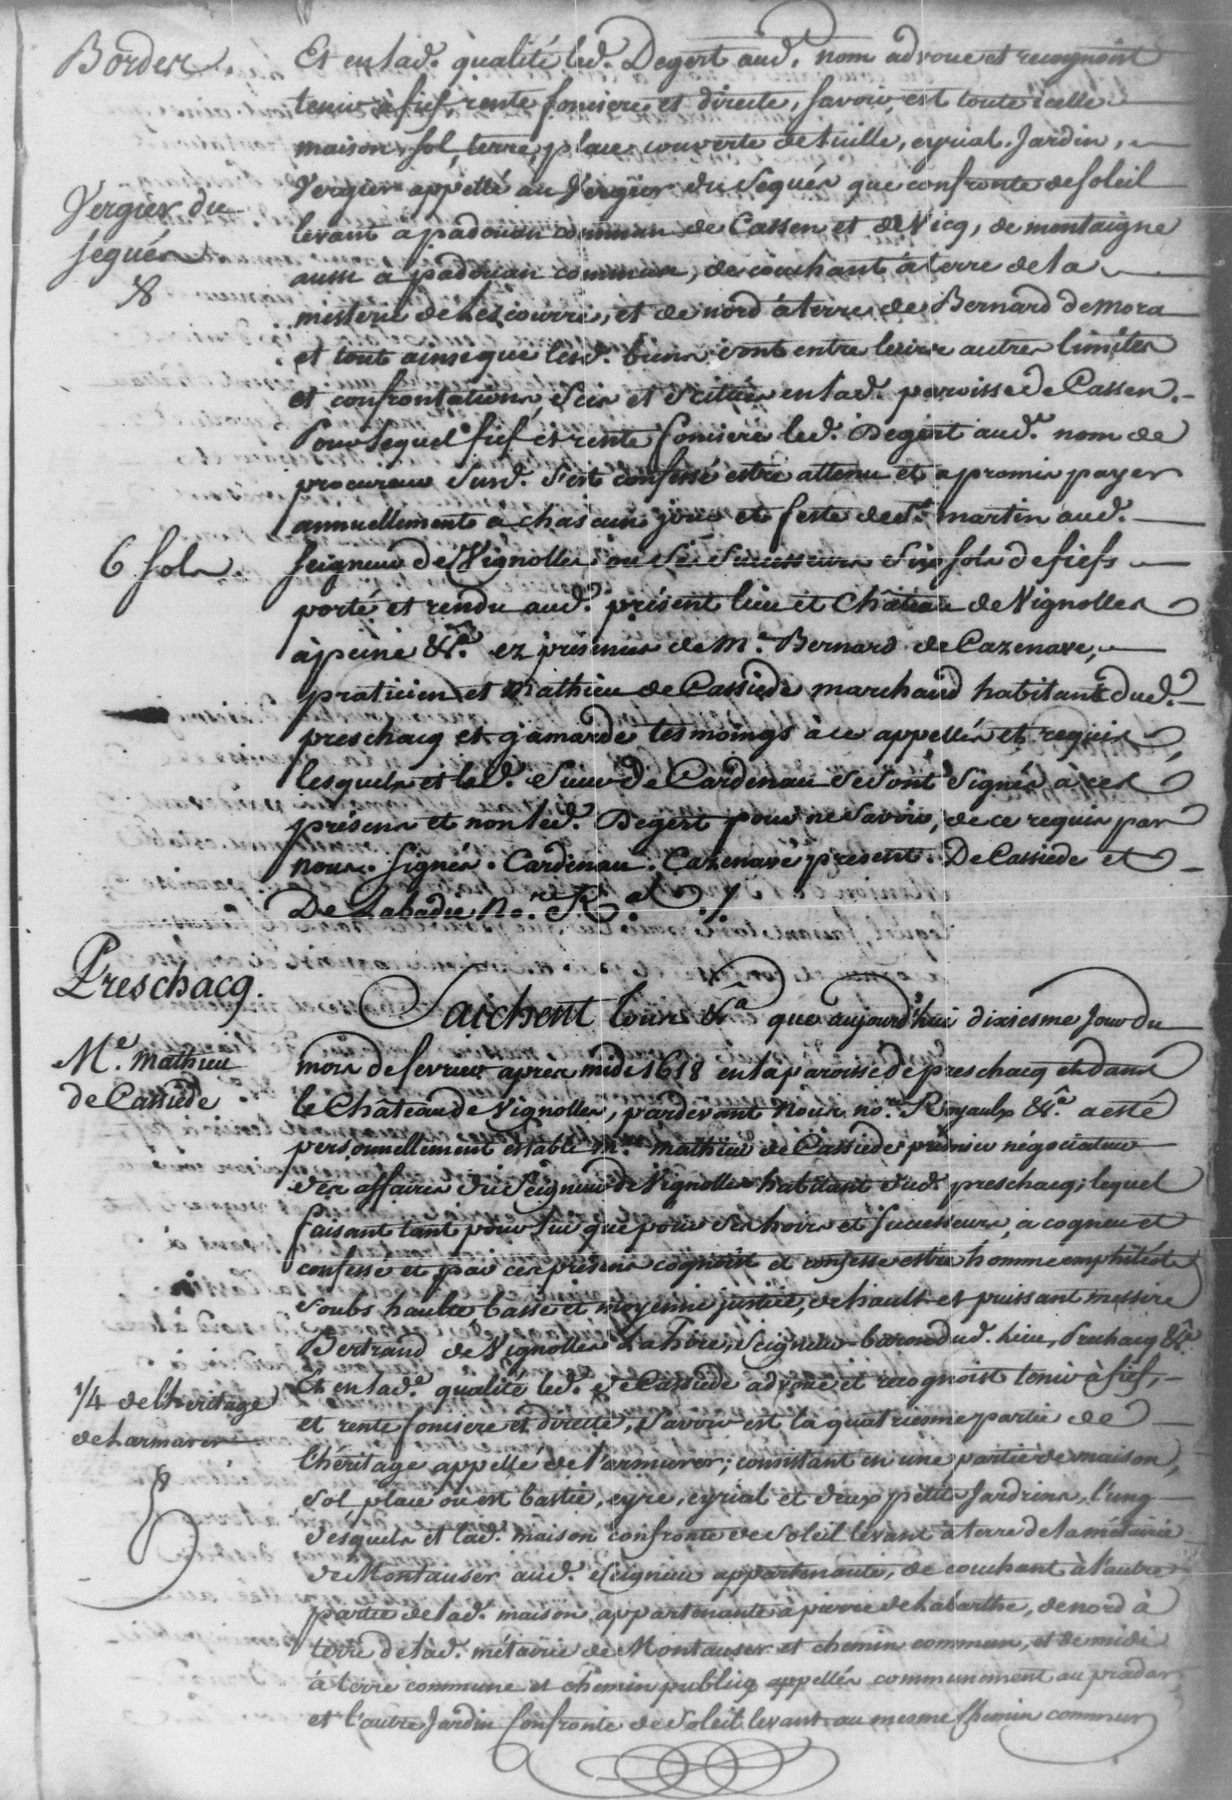 Bordes.
Et en lad. qualité led. Degert aud. nom advoue et recognoist
tenir a fief, rente fonsiere et directe, savoir est toute icelle
maison, sol, terre, place couverte de tuille, eyrial, Jardin,
Vergier appellé au Vergier du Seguès que confronte de soleil
Vergier du
Seguès
levant a padouan commun de Cassen et de Vicq, de montaigne
aussi a padouan commun, de couchant à terre de la
misterie de Lescourre, et de nord à terre de Bernard de mora
et tout ainsi que lesd. biens sont entre leurs autres limites
et confrontations, scis et scitués en lad. paroisse de Cassen.
Pour lequel fief et rente fonsiere led. Degert aud. nom de
procureur susd. s'est confessé estre attenu et a promis payer
annuellement a chascun jour et feste de St. martin aud.
6 sols.
seigneur de Vignolles ou ses successeurs six sols de fiefs
porté et rendu aud. présent lieu et Château de Vignolles
à peine &a. ez présences de Me. Bernard de Cazenave,
praticien et Mathieu de Cassiede marchand habitants dud.
preschacq et gamarde tesmoings à ce appellés et requis
lesquels et led. Sieur de Cardenau se sont signés à ces
présens et non led. Degert pour ne savoir, de ce requis par
nous. Signés. Cardenau. Cazenave present. De Cassiede et
De Labadie No.re R.al
Preschacq.
Saichent tous &a que aujourd'hui dixiesme jour du
Me. Mathieu
de Cassiede
mois de fevrier apres midi 1618 en la paroisse de preschacq et dans
le Château de Vignolles, pardevant Nous no.re Royaulx &a a esté
personnellement establi Me. Mathieu de Cassiede premier négociateur
des affaires du Seigneur de Vignolles habitant dud. preschacq; lequel
faisant tant pour lui que pour ses hoirs et successeurs, à cogneu et
confesse et par ces présens cognoist et confesse estre homme emphitéote
soubs haulte basse et moyenne justice, de hault et puissant messire
Bertrand de Vignolles Lahire, Seigneur baron dud. lieu, Preschacq &a
Et en lad. qualité led. de Cassiede advoue et recognoist tenir à fief,
1/4 de l'heritage
de Larmaver
et rente fonsiere et directe, savoir est la quatriesme partie de
l'héritage appellé de l'armurer; consistant en une partie de maison,
sol place ou est bastie, eyre, eyrial et deux petits Jardrins, l'ung
desquels et lad. maison confronte de soleil levant à terre de la métairie
de Montauser aud. Seigneur appartenante, de couchant à l'autre
partie de lad. maison, appartenante à pierre de Labarthe, de nord à
terre de lad. métairie de Montauser et chemin commun, et de midi
à terre commune et chemin publicq appellés communement au pradas
et l'autre Jardin confronte de soleil levant au mesme chemin commun